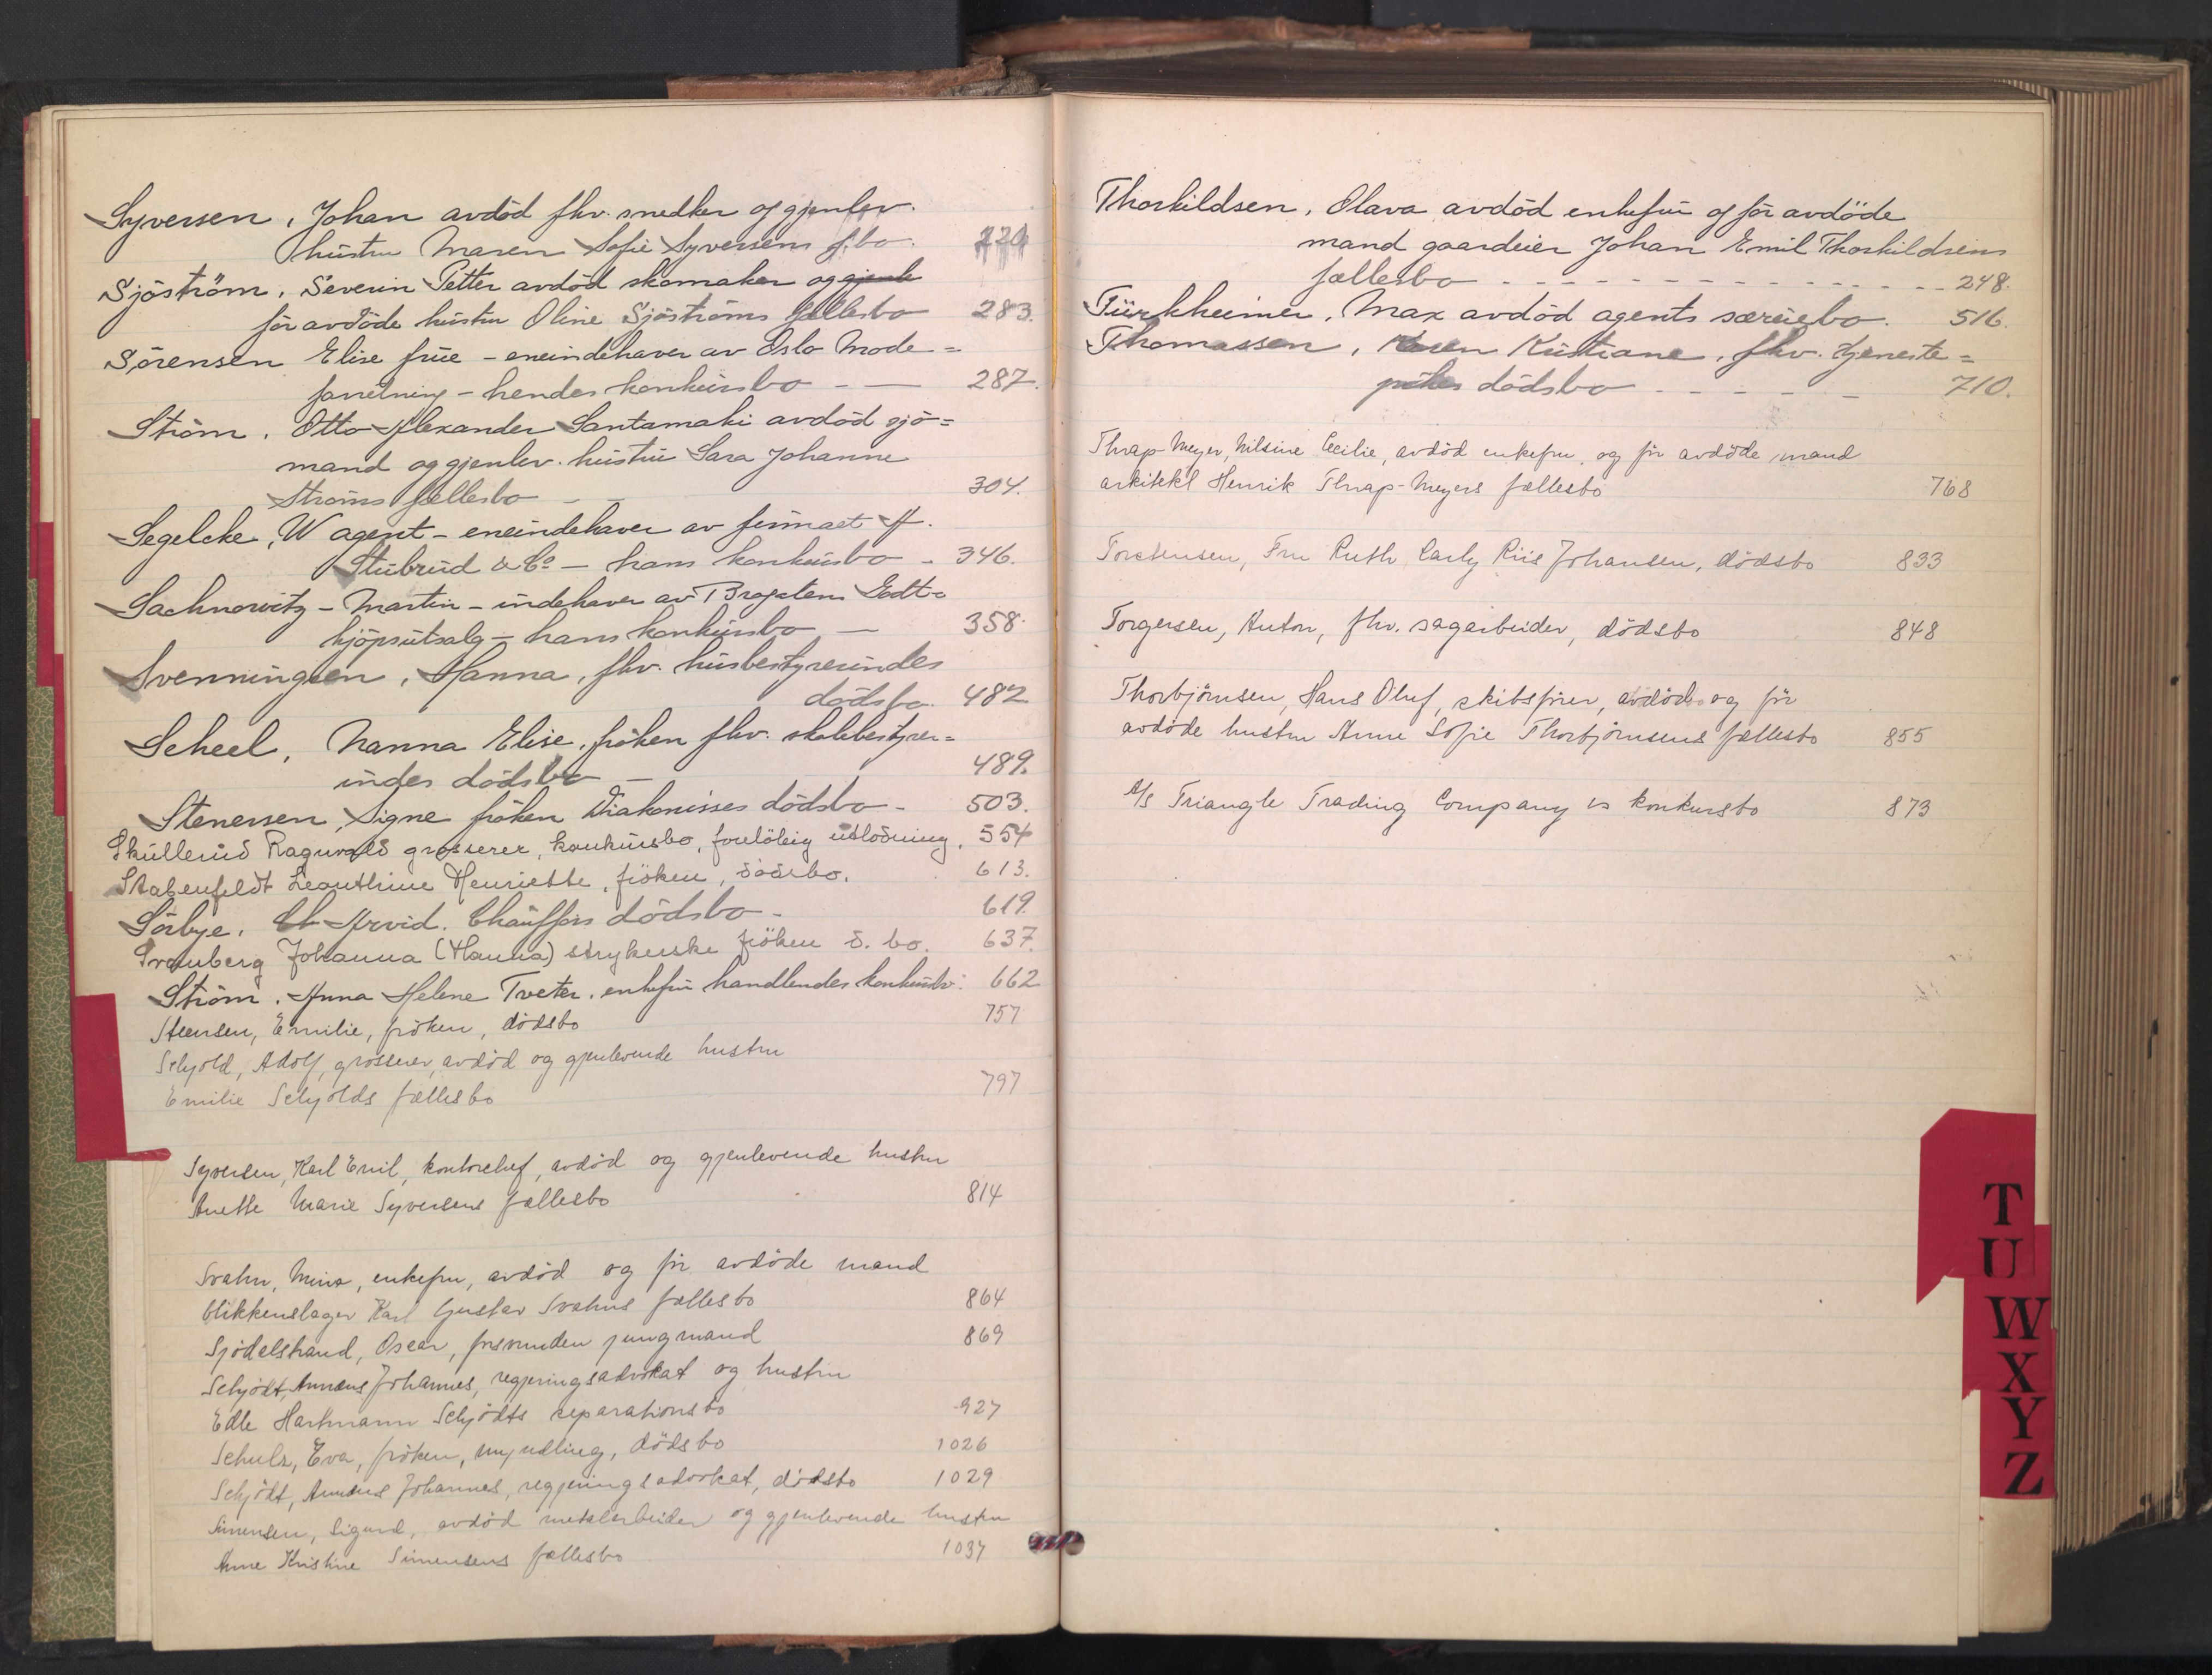 Syversen, Johan avdöd fhv. snedker og gjenlev.
hustru Maren Sofie Syversens f.bo.
Sjöström, Severin Petter avdöd skomaker og gjenle
för avdöde hustru Oline Sjöströms fællesbo 283.
Sörensen Elise frue - eneindehaver av Oslo Mode=
forretning - hendes konkursbo - — 287.
Ström, Otto Alexander Santamaki avdöd sjö=
mand og gjenlev. hustru Sara Johanne
Ströms fællesbo - - 304.
Segelcke, W agent - eneindehaver av firmaet A.
Stubrud & Co - hans konkursbo - 346.
Sachnowitz - Martin - indehaver av Bragatens Godt-
kjöpsutsalg - hans konkursbo — 358.
Svenningsen, Hanna, fhv. husbestyrerindes
dödsbo. 482
Scheel, Nanna Elise, fröken fhv. skolebestyrer=
indes dödsbo — 489.
Stenersen, Signe fröken Diakonisses dödsbo - 503.
Skullerud Ragnvald grosserer, konkursbo, foreløbig utlodning, 554
Stabenfeldt Leonthine Henriette, fröken, dödsbo. 613.
Sörbye, Arvid. Chaufförs dödsbo - 619.
Svanberg Johanna (Hanna) strykerske fröken d. bo. 637.
Ström, Anna Helene Tveter, enkefru handlendes konkursbo. 662
Steensen, Emilie, fröken, dödsbo 757
Schjold, Adolf, grosserer, avdöd og gjenlevende hustru
Emilie Schjolds fællesbo 797
Syversen, Karl Emil, kontorchef, avdöd og gjenlevende hustru
Anette Marie Syversens fællesbo 814
Svahn, Mina, enkefru, avdöd og för avdöde mand
blikkenslager Karl Gustav Svahns fællesbo 864
Sjödelstrand, Oscar, forsvunden jungmand 869
Schjödt, Annæus Johannes, regjeringsadvokat og hustru
Edle Hartmann Schjödts separationsbo 927
Schulz, Eva, fröken, myndling, dödsbo 1026
Schjödt, Annæus Johannes, regjeringsadvokat, dödsbo 1029
Simensen, Sigurd, avdöd metalarbeider og gjenlevende hustru
Anne Kristine Simensens fællesbo 1037
Thorkildsen, Olava avdöd enkefru og för avdöde
mand gaardeier Johan Emil Thorkildsens
fællesbo - - - - - - - - - - 248.
Türkheimer, Max avdöd agents særeiebo. 516.
Thomassen, Karen Kristiane, fhv. tjeneste=
pikes dödsbo - - - - - 710.
Thrap-Meyer, Nilsine Cecilie, avdöd enkefru, og för avdöde mand
arkitekt Henrik Thrap-Meyers fællesbo 768
Torstensen, Fru Ruth Carly Riis Johansen, dödsbo 833
Torgersen, Anton, fhv. sagarbeider, dödsbo 848
Thorbjörnsen, Hans Oluf, skibsförer, avdöd og för
avdöde hustru Anne Sofie Thorbjörnsens fællesbo 855
A/S Triangle Trading Company's konkursbo 873
T
U
W
X
Y
Z